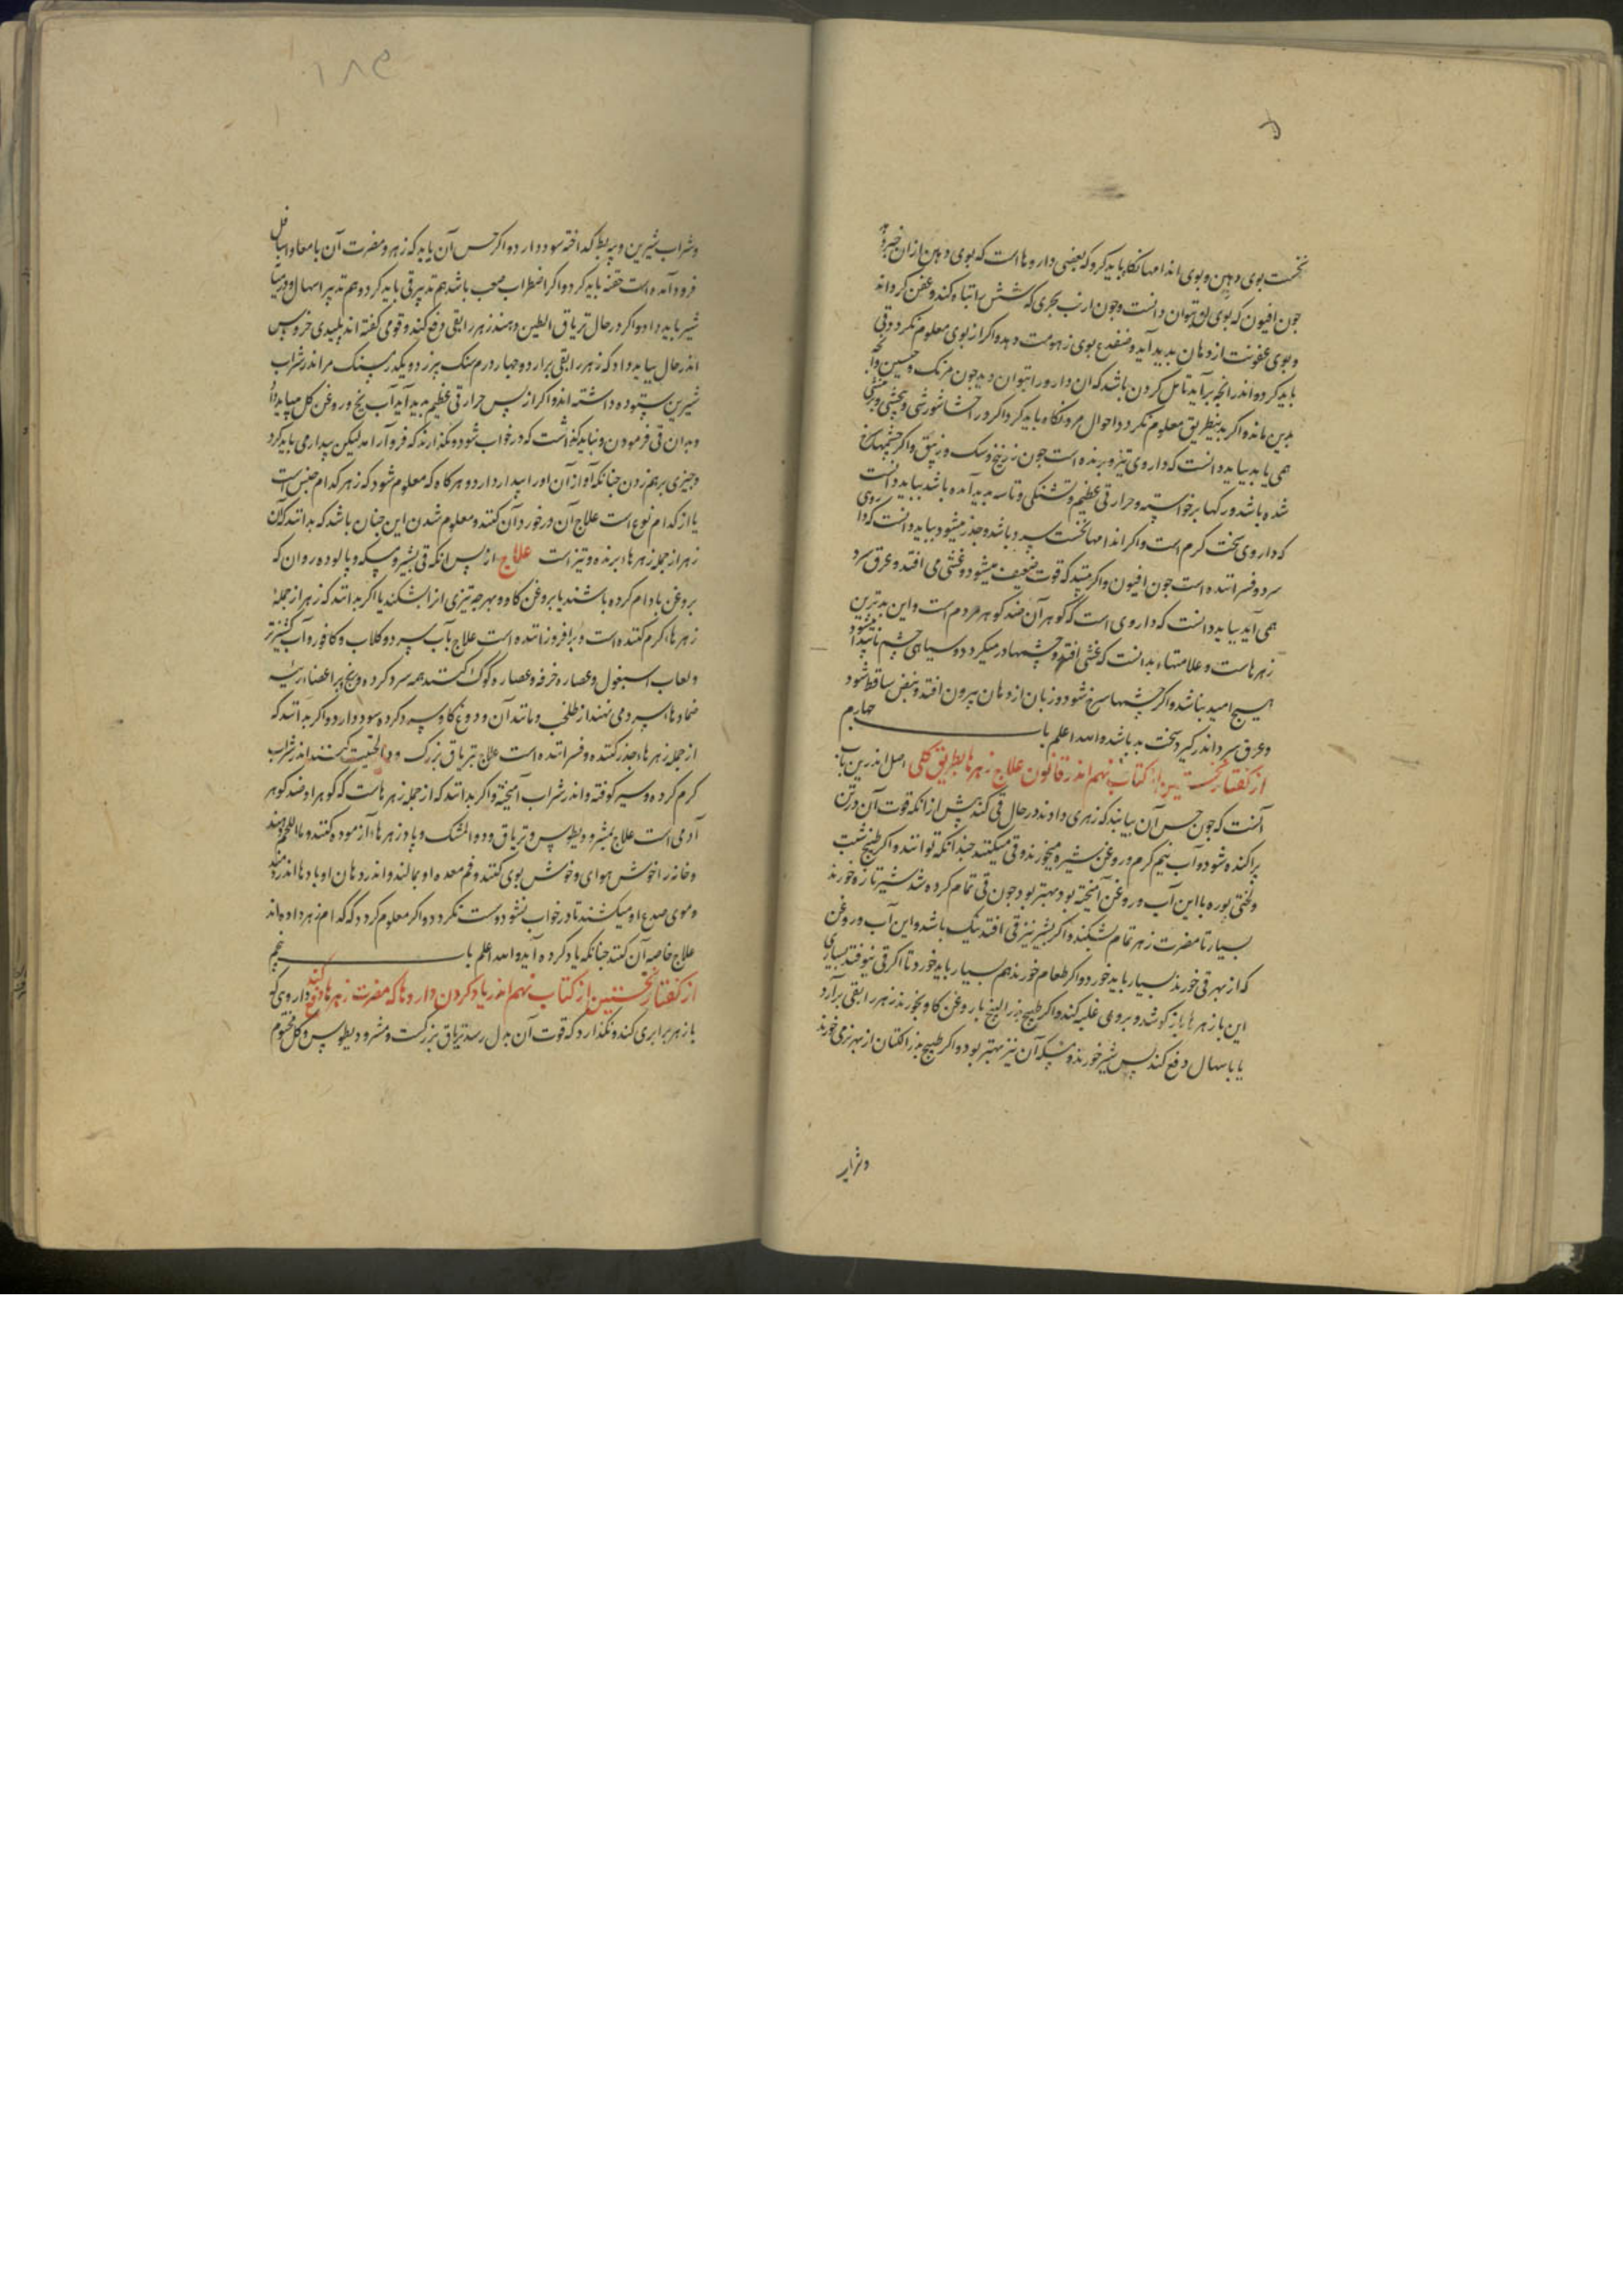 نخست بوی دهن و بوی اندامها نکاه باید کرد که بعضی داروها است که بوی دهن از ان خبر دهد
جون افیون که بوی او بتوان دانست وجون ارنب بحری که شش را تباه کند وعفن کرداند
وبوی عفونت از دهان بدید آید وضفدع بوی زهومت دهد واکر از بوی معلوم نکردد قی
باید کرد واندر انچه برآید تامل کردن باشد که ان دارو را بتوان دید جون مرتک وجبسین وآنچه
بدین ماند واکر بدینطریق معلوم نکردد احوال مردم نکاه باید کرد اکر در احشا سوزشی
همی یابد بباید دانست که داروی تیز وبرنده است جون زرنیخ وسک وزیبق واکر چشمها سرخ
شده باشد ورکها برخواسته وحرارتی عظیم وتشنکی وتاسه بدید آمده باشد بباید دانست
که داروی سخت کرم است واکر اندامها نخست سرد باشد وخدر میشود بباید دانست که داروی
سرد وفسراننده است جون افیون واکر بیند که قوت ضعیف میشود وغشی می افتد وعرق سرد
همی آید بباید دانست که داروی است که کوهر آن ضد کوهر مردم است واین بدترین
زهرهاست وعلامتهاء بد انست که غشی افتد وچشمها در میکردد وسیاهی چشم نابیدا میشود
هیچ امید نباشد واکر چشمها سرخ شود وزبان از دهان بیرون افتد ونبض ساقط شود
وعرق سرد اندر کیرد سخت بد باشد والله اعلم باب چهارم
از کفتار نخستین از کتاب نهم اندر قانون علاج زهرها بطریق کلی اصل اندرین باب
آنست که جون حس آن بیابند که زهری دادند در حال قی کند پیش از انکه قوت آن در تن
براکنده شود وآب نیم کرم وروغن شیره میخورند وقی میکنند چندانکه توانند واکر طبیخ شبت
ولختی بوره با این آب وروغن آمیخته بود بهتر بود وجون قی تمام کرده شد شیر تازه خورند
بسیار تا مضرت زهر تمام بشکند واکر بشیر نیز قی افتد نیک باشد واین آب وروغن
که از بهر قی خورند بسیار باید خورد واکر طعام خورند هم بسیار باید خورد تا اکر قی نیوفتد بسیاری
این با زهرها باز کوشد وبروی غلبه کند واکر طبیخ بزر النج با روغن کاو بخورند زهر را بقی برآرد
یا باسهال دفع کند بس شیر خورند ومسکه آن نیز بهتر بود واکر طبیخ بزر الکتان از بهر نرمی خورند
وشراب
وشراب شیرین وپیه بط کداخته سود دارد واکر حس آن یابد که زهر ومضرت آن بامعاء اسافل
فرود آمده است حقنه باید کرد واکر اضطراب صعب باشد هم تدبیر قی باید کرد وهم تدبیر اسهال
شیر باید داد واکر در حال تریاق الطین دهند زهر را بقی دفع کند وقومی کفته اند بلیدی خروس
اندر حال بباید داد که زهر را بقی برارد وچهار درم سنک ببزر
شیرین ستوده داشته اند واکر از بس حرارتی عظیم بدید آید آب یخ وروغن کل میباید داد
وبدان قی فرمودن ونباید کذاشت که در خواب شود ونکذارند که فرو آرامد لیکن بیدار می باید کرد
وچیزی برهم زدن چنانکه آواز آن او را بیدار دارد وهرکاه که معلوم شود که زهر کدام جنس است
یا از کدام نوع است علاج آن در خورد آن کنند ومعلوم شدن این چنان باشد که بدانند که آن
زهر از جمله زهرهاء برنده وتیز است علاج از بس انکه قی بشیر ومسکه وبالوده روان که
بروغن بادام کرده باشند یا بروغن کاو وبهرچه تیزی انرا بشکند یا اکر بدانند که زهر از جملهٔ
زهرهاء کرم کننده است وبرافروزاننده است علاج بآب سرد وکلاب وکافور وآب کشنیز تر
ولعاب اسبغول وعصاره خرفه وعصاره کوک کنند همه سرد کرده وبیخ وبر اعضاء رئیسه
ضمادهاء سرد می نهند از طحلب ومانند آن ودوغ کاو سرد کرده سود دارد واکر بدانند که
از جمله زهرهاء خدر کننده وفسراننده است علاج بتریاق بزرک ودوا الحلتیت کنند اندر شراب
کرم کرده وسیر کوفته واندر شراب آمیخته واکر بدانند که از جمله زهرهاست که کوهر او ضد کوهر
آدمی است علاج بمثرودیطوس وتریاق ودواالمشک وپادزهرهاء آزموده کنند وماءاللحم دهند
وخانه را خوش هوای وخوش بوی کنند وفم معده او بمالند واندر دهان او بادها اندر دمند
وموی صدغ او میکشند تا در خواب نشود وسست نکردد واکر معلوم کردد که کدام زهر داده اند
علاج خاصه آن کنند چنانکه یاد کرده آید والله اعلم باب پنجم
از کفتار نخستین از کتاب نهم اندر یاد کردن داروها که مضرت زهرها دفع کند داروی که
با زهر برابری کند ونکذارد که قوت آن بدل رسد تریاق بزرکست ومثرودیطوس وکل مختوم